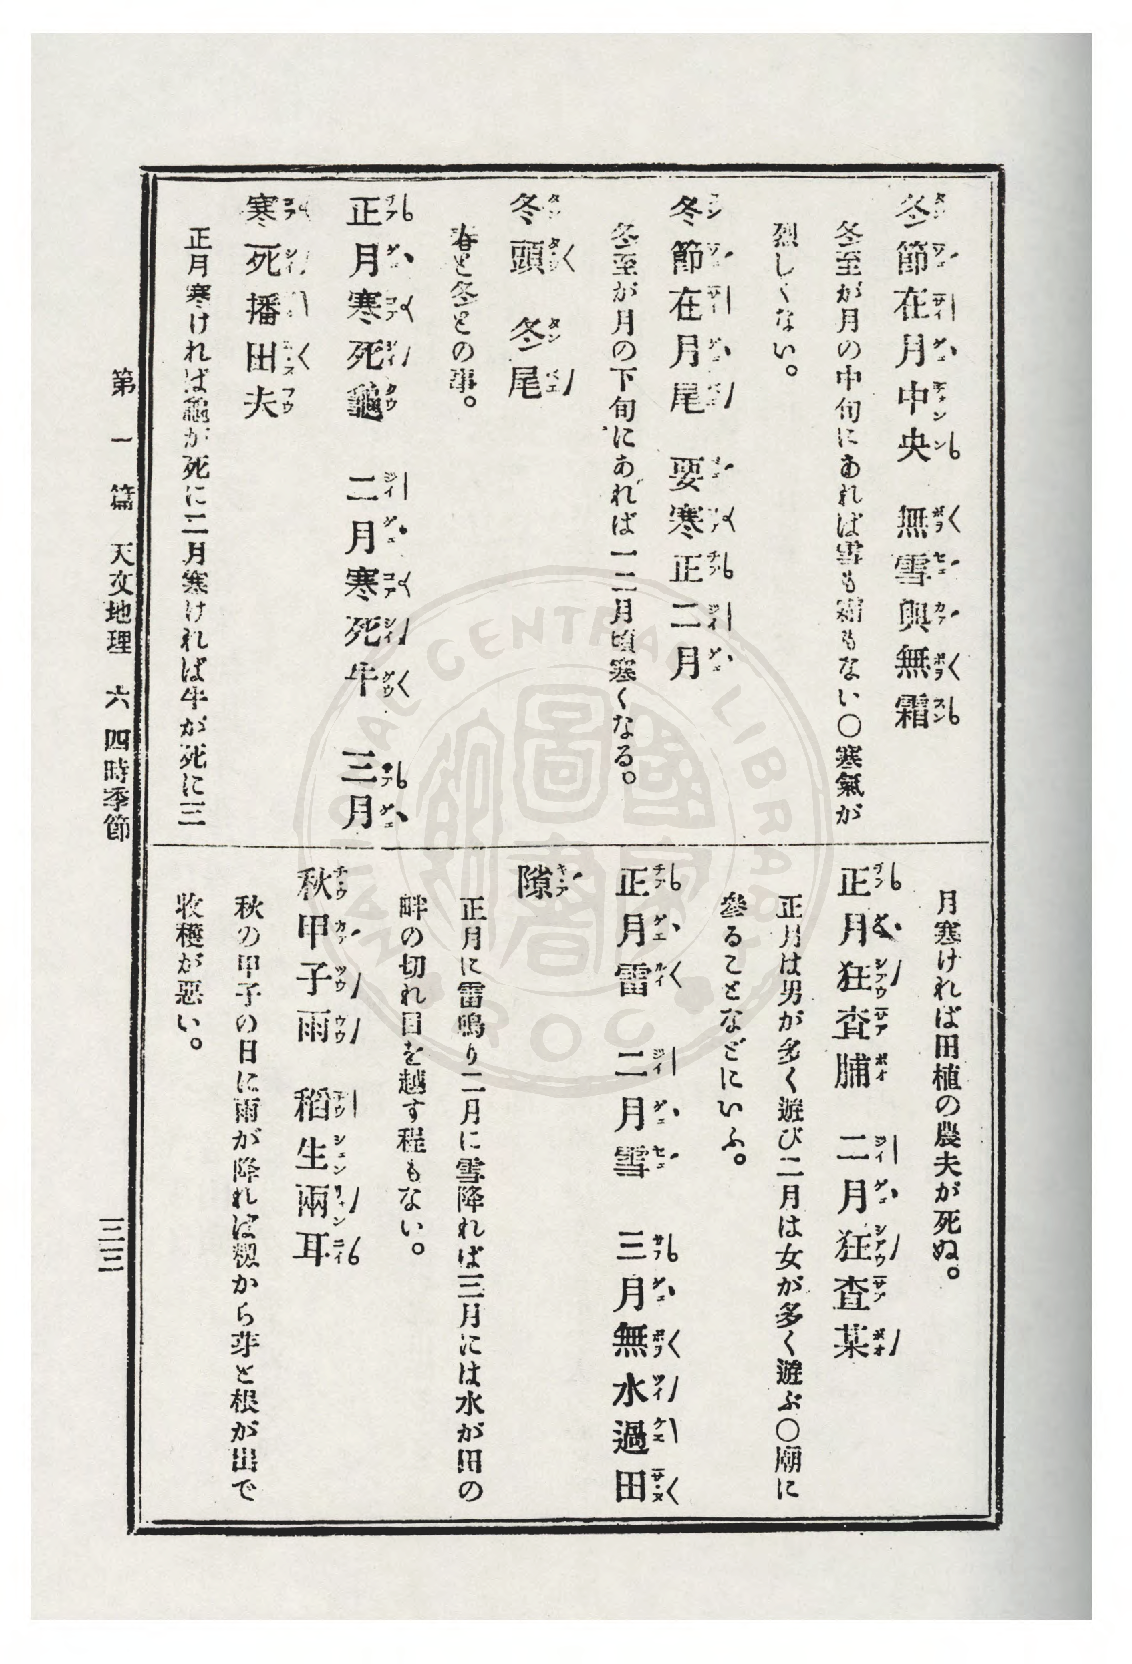 冬節在月中央　無雪與無霜
冬至が月の中旬にあれば雪も霜もない〇寒氣が
烈しくない。
冬節在月尾　要寒正二月
冬至が月の下旬にあれば一二月頃寒くなる。
冬頭　冬尾
春と冬との事。
正月寒死龜　二月寒死牛　三月
寒死播田夫
正月寒ければ龜が死に二月寒ければ牛が死に三
月寒ければ田植の農夫が死ぬ。
正月狂査脯　二月狂査某
正月は男が多く遊び二月は女が多く遊ぶ〇廟に
參ることなどにいふ。
正月雷　二月雪　三月無水過田
隙
正月に雷鳴り二月に雪降れば三月には水が田の
畔の切れ目を越す程もない。
秋甲子雨　稻生兩耳
秋の甲子の日に雨が降れば穀から芽と根が出で
收穫が惡い。
第一篇　天文地理　六　四時季節
三三
NATIONAL CENTRAL LIBRARY
ROC
國家圖書館